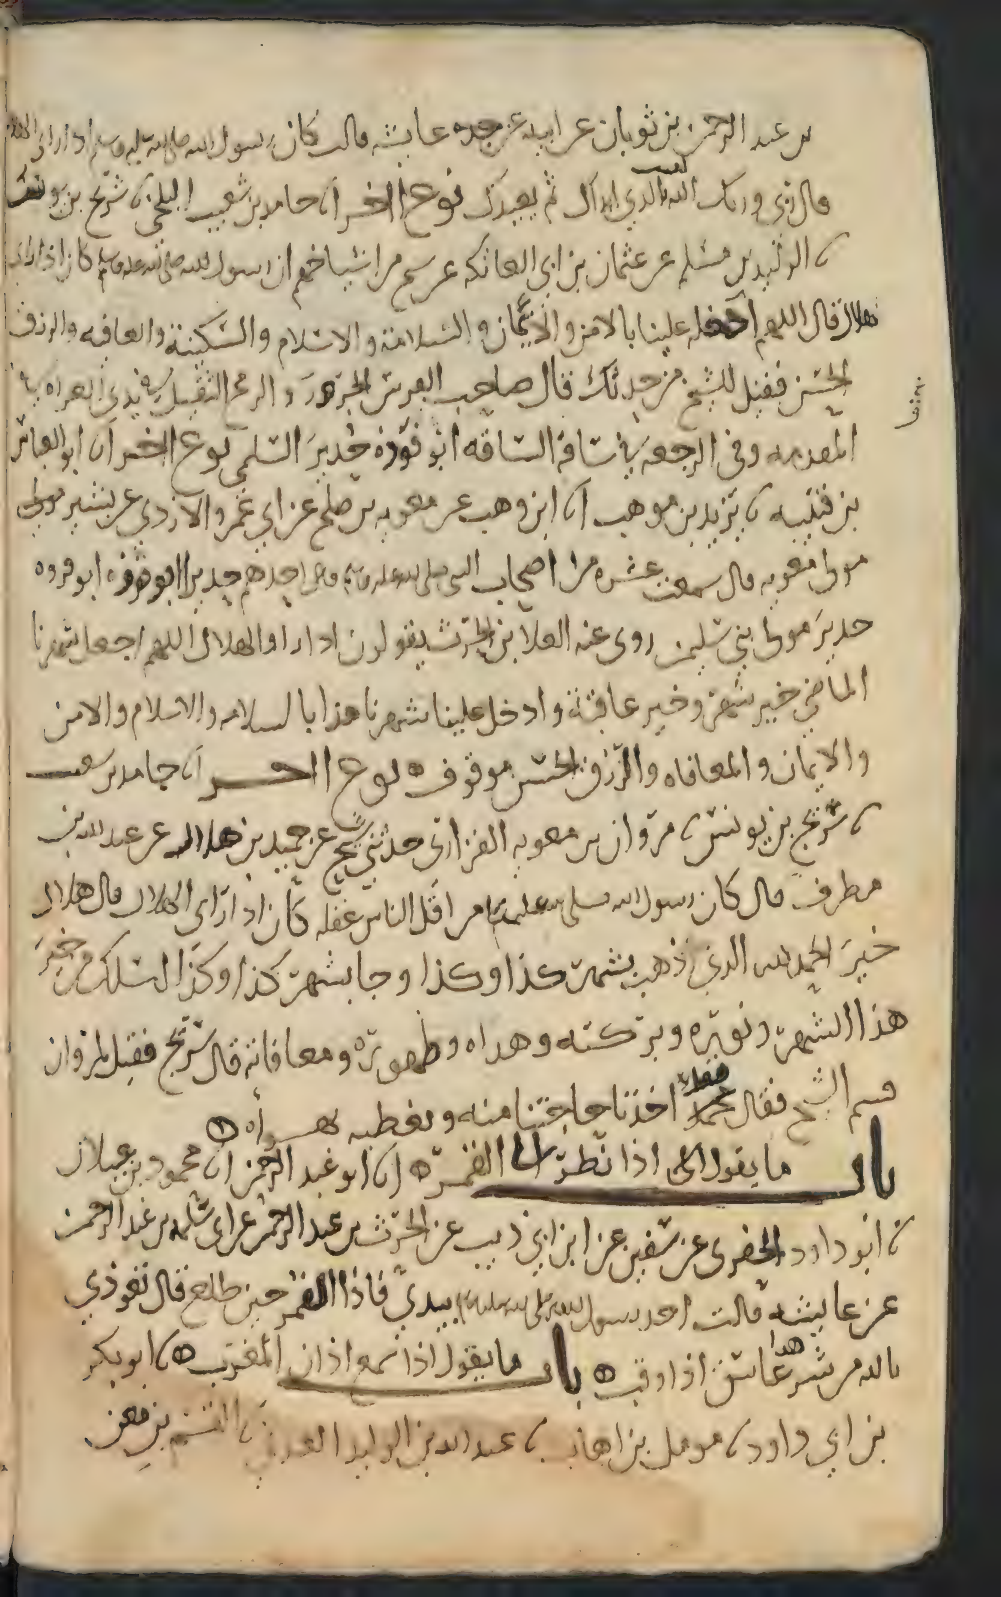 بن عبد الرحمن بن ثوبان عن ابيه عن جده عايشه قالت كان رسول الله صلى الله عليه وسلم اذا راى الهلال
قال ربي وربك الله الذي ابداك ثم يعيدك نوع اخر انا حامد بن شعيب البلخي نا شريح بن يونس
نا الوليد بن مسلم عن عثمان بن ابي العاتكه عن شيخ من اشياخهم ان رسول الله صلى الله عليه وسلم كان اذا راى
الهلال قال اللهم ادخله علينا بالامن والايمان والسلامة والاسلام والسكينة والعافيه والرزق
الحسن فقيل للشيخ من حدثك قال صاحب الفرس الحرور والرمح الثقيل في
المقدمه وفي الرجعه في ساقة الساقه ابو فوزة حدير السلمي نوع اخر انا ابو العباس
بن قتيبه نا يزيد بن موهب انا ابن وهب عن معويه بن صلح عن ابي عمرو الازدي عن بشير مولى
مولى معويه قال سمعت عشره من اصحاب النبي صلى الله عليه وسلم احدهم حدير ابو فوزه ابو فروه
حدير مولى بني سليم روى عنه العلا بن الحرث يقولون اذا راوا الهلال اللهم اجعل شهرنا
الماضي خير شهر وخير عافية وادخل علينا شهرنا هذا بالسلامه والاسلام والامن
والايمان والمعافاه والرزق الحسن موقوف نوع اخر انا حامد بن شعيب
نا شريح بن يونس نا مروان بن معويه الفزاري حدثني شيخ عن حميد بن هلال عن عبد الله بن
مطرف قال كان رسول الله صلى الله عليه وسلم من اقل الناس غفله كان اذا راى الهلال قال هلال
خير الحمد لله الذي ذهب بشهر كذا وكذا وجا بشهر كذا وكذا اسلك من خير
هذا الشهر ونوره وبركته وهداه وطهوره ومعافاته قال شريح فقيل لمروان
قسم الشيخ فقال اخذنا حاجتنا منه ونغطيه
باب ما يقول اذا نظر الى القمر انا ابو عبد الرحمن انا محمود بن غيلان
نا ابو داود الحفري عن سفين عن ابن ابي ذيب عن الحرث بن عبد الرحمن عن ابي سلمه بن عبد الرحمن
عن عايشه قالت اخذ رسول الله صلى الله عليه وسلم بيدي فاذا القمر حين طلع قال تعوذي
بالله من شر هذا غاسق اذا وقب باب ما يقول اذا سمع اذان المغرب نا ابو بكر
بن ابي داود نا مومل بن اهاب نا عبد الله بن الوليد العدني نا القسم بن معن